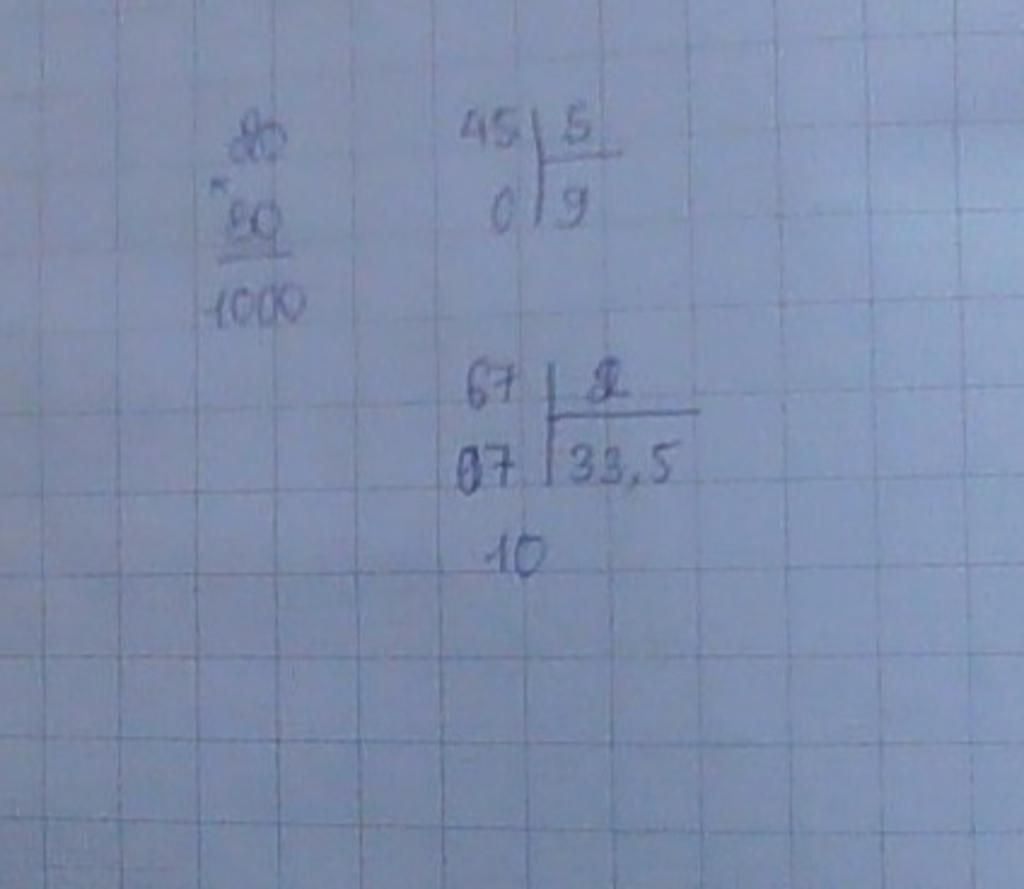 20
×
50
1000
45 | 5
0 | 9
67 | 2
07 | 33,5
10